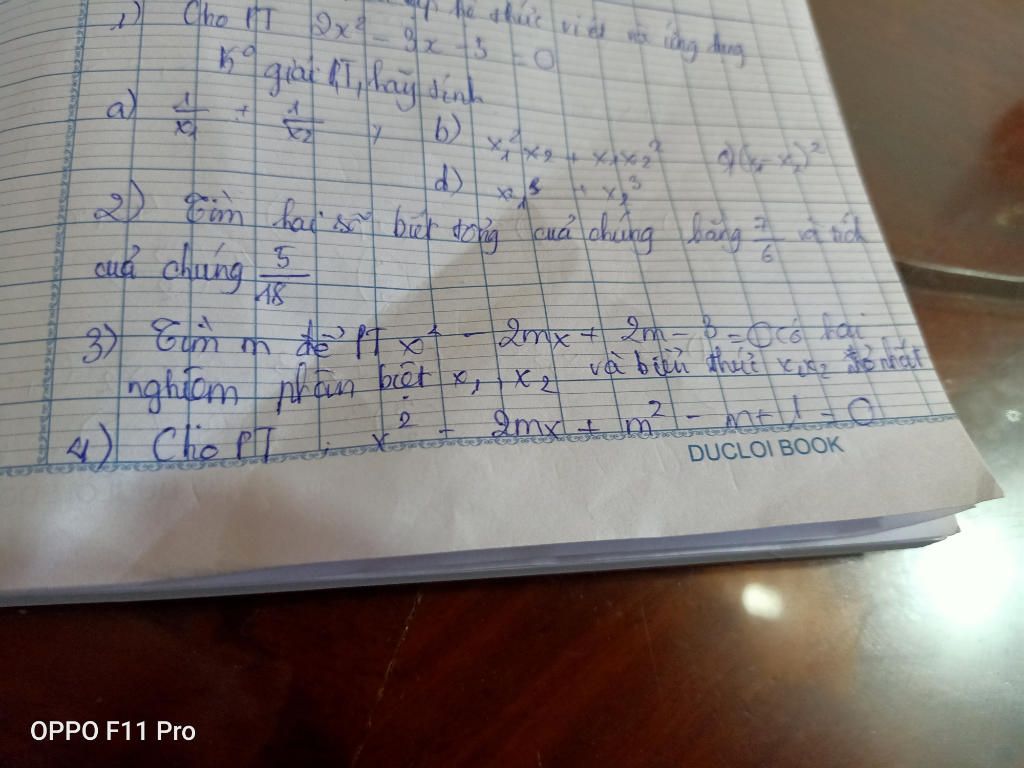 hệ thức viét và ứng dụng
1) Cho PT 2x² - 9x - 3 = 0
K⁰ giải PT, hãy tính
a) 1/x₁ + 1/x₂ , b) x₁²x₂ + x₁x₂² c) (x₁ - x₂)²
d) x₁³ + x₂³
2) Tìm hai số biết tổng của chúng bằng 7/6 và tích
của chúng 5/18
3) Tìm m để PT x² - 2mx + 2m - 3 = 0 có hai
nghiệm phân biệt x₁, x₂ và biểu thức x₁x₂ nhất
4) Cho PT : x² - 2mx + m² - m + 1 = 0
DUCLOI BOOK
OPPO F11 Pro